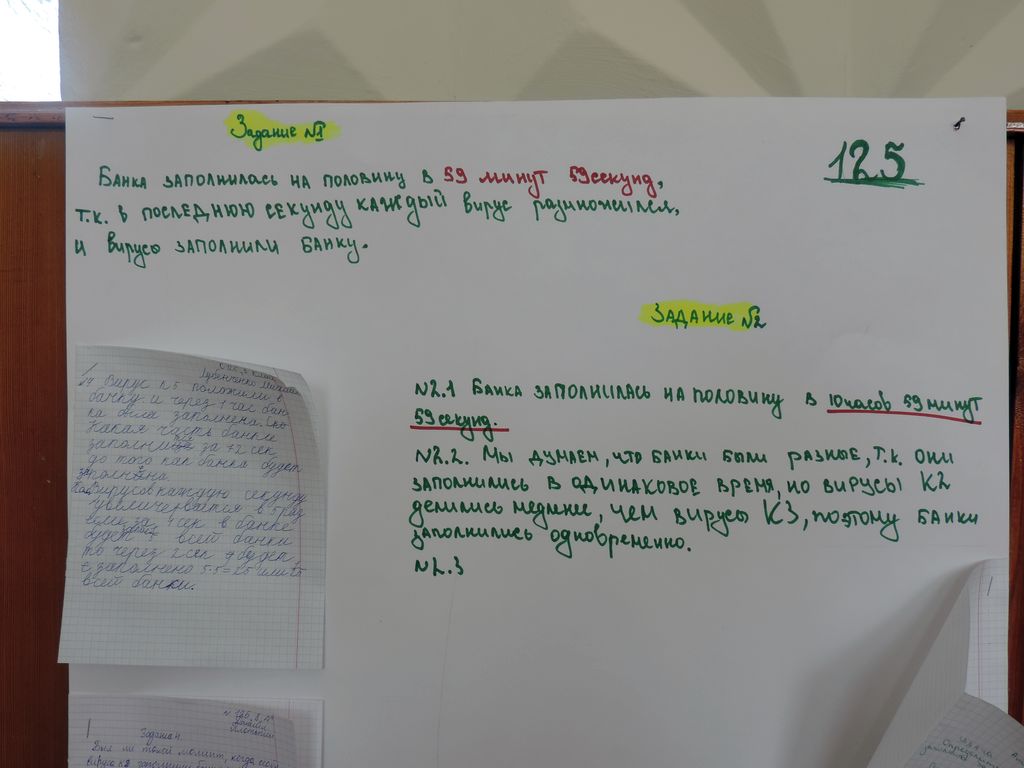 Задание №1
125
Банка заполнилась на половину в 59 минут 59секунд,
т.к. в последнюю секунду каждый вирус размножился,
и вирусы заполнили банку.
Задание №2
№2.1 Банка заполнилась на половину в 10часов 59 минут
59секунд.
№2.2. Мы думаем, что банки были разные, т.к. они
заполнились в одинаковое время, но вирусы К2
делились медленее, чем вирусы К3, поэтому банки
заполнились одновременно.
№2.3
Вирус К5 положили в
банку и через 1 час бан-
ка была заполнена.
Какая часть банки
заполни за 2 сек
до того как банка будет
заполнена.
Вирусов каждую секунду
увеличивается в 5 раз
если за 1 сек в банке
будет всей банки
то через 2 сек будет
заполнено 5·5=25 или
всей банки.
Задача 4
Был ли такой момент, когда